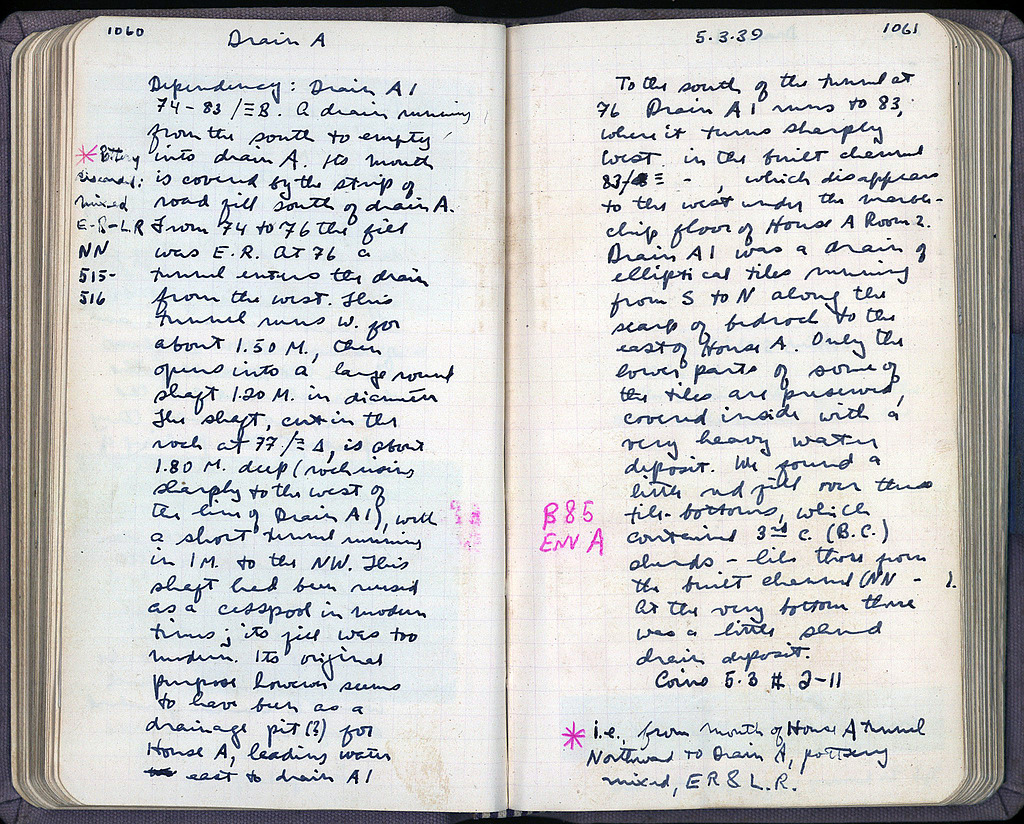 1060
Drain A
Dependency: Drain A1
74-83/ΞB. A drain running
from the south to empty
into drain A. Its mouth
is covered by the strip of
road fill south of drain A.
From 74 to 76 the fill
was E.R. At 76 a
tunnel enters the drain
from the west. This
tunnel runs W. for
about 1.50 M., then
opens into a large round
shaft 1.20 M. in diameter
The shaft, cut in the
rock at 77/Ξ Δ, is about
1.80 M. deep (rock rising
sharply to the west of
the line of Drain A1), with
a short tunnel running
in 1M. to the NW. This
shaft had been reused
as a cesspool in modern
times; its fill was too
modern. Its original
purpose however seems
to have been as a
drainage pit (?) for
House A, leading water
east to drain A1
* Pottery
discarded:
mixed
E-R-L.R
NN
515-
516
5.3.39
1061
To the south of the tunnel at
76 Drain A1 runs to 83,
where it turns sharply
west in the built channel
83/Ξ - , which disappears
to the west under the marble-
chip floor of House A Room 2.
Drain A1 was a drain of
elliptical tiles running
from S to N along the
scarp of bedrock to the
east of House A. Only the
lower parts of some of
the tiles are preserved,
covered inside with a
very heavy water
deposit. We found a
little red fill over these
tile-bottoms, which
contained 3rd c. (B.C.)
sherds - like those from
the built channel (NN - ).
At the very bottom there
was a little sand
drain deposit.
Coins 5.3 # 2-11
B85
ENV A
* i.e., from mouth of House A tunnel
Northward to Drain A, pottery
mixed, ER & L.R.